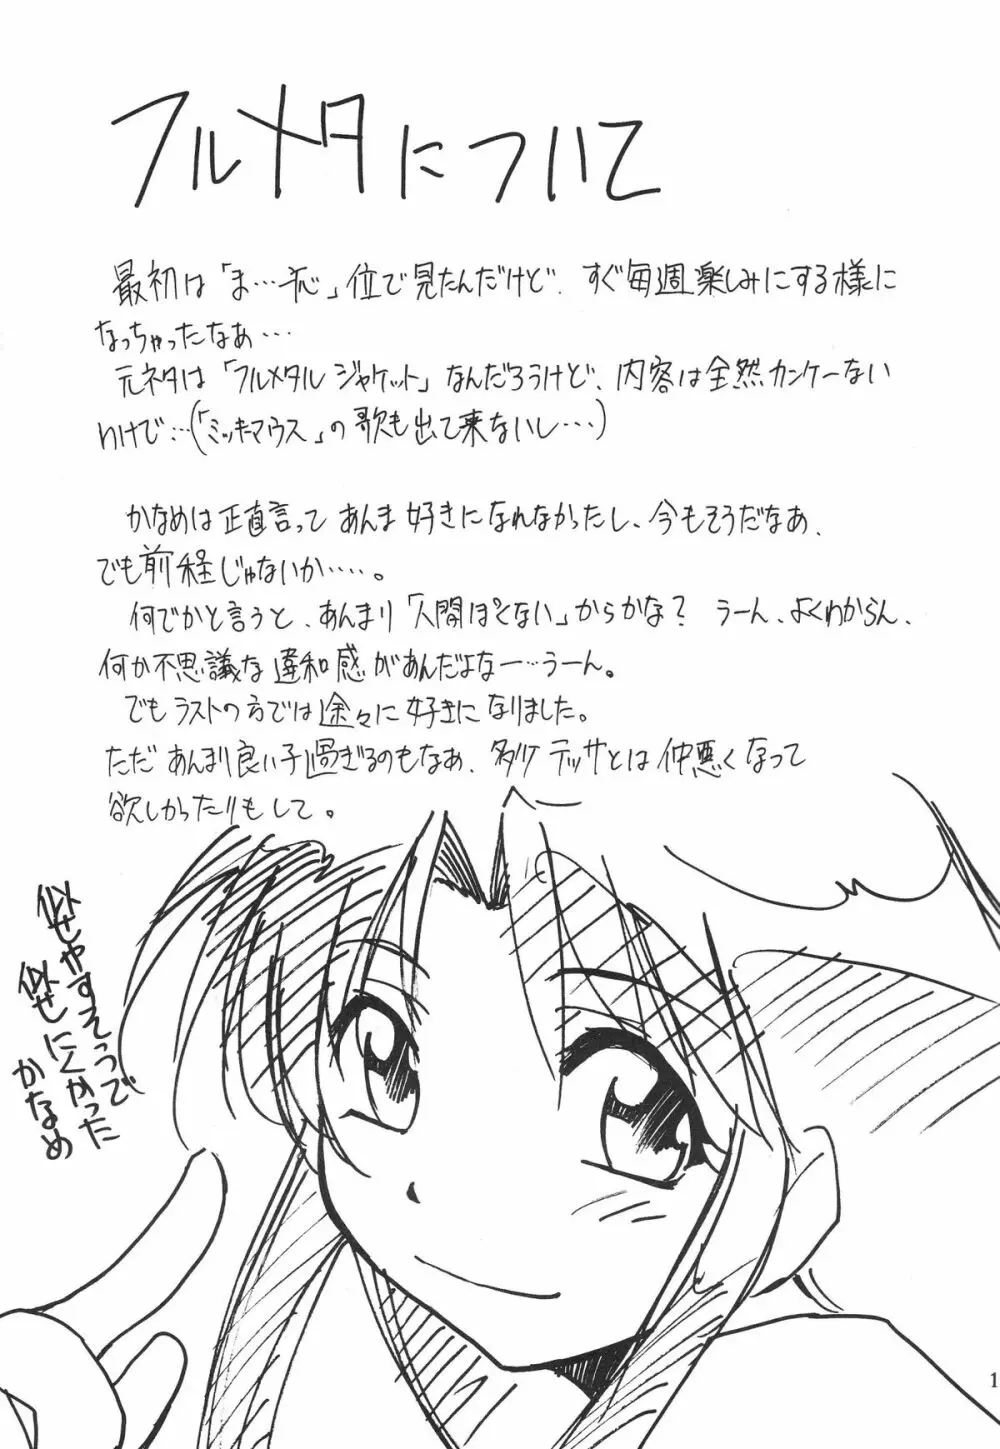 フルメタについて
最初は「ま…一応」位で見たんだけど、すぐ毎週楽しみにする様に
なっちゃったなぁ…
元ネタは「フルメタルジャケット」なんだろうけど、内容は全然カンケーない
わけで…(「ミッキーマウス」の歌も出て来ないし…)
かなめは正直言ってあんま好きになれなかったし、今もそうだなあ、
でも前程じゃないか……。
何でかと言うと、あんまり「人間ぽくない」からかな? うーん、よくわからん、
何か不思議な違和感があんだよなー…うーん。
でもラストの方では途々に好きになりました。
ただあんまり良い子過ぎるのもなぁ、多少テッサとは仲悪くなって
欲しかったりもして。
似せやすそうで
似せにくかった
かなめ
1